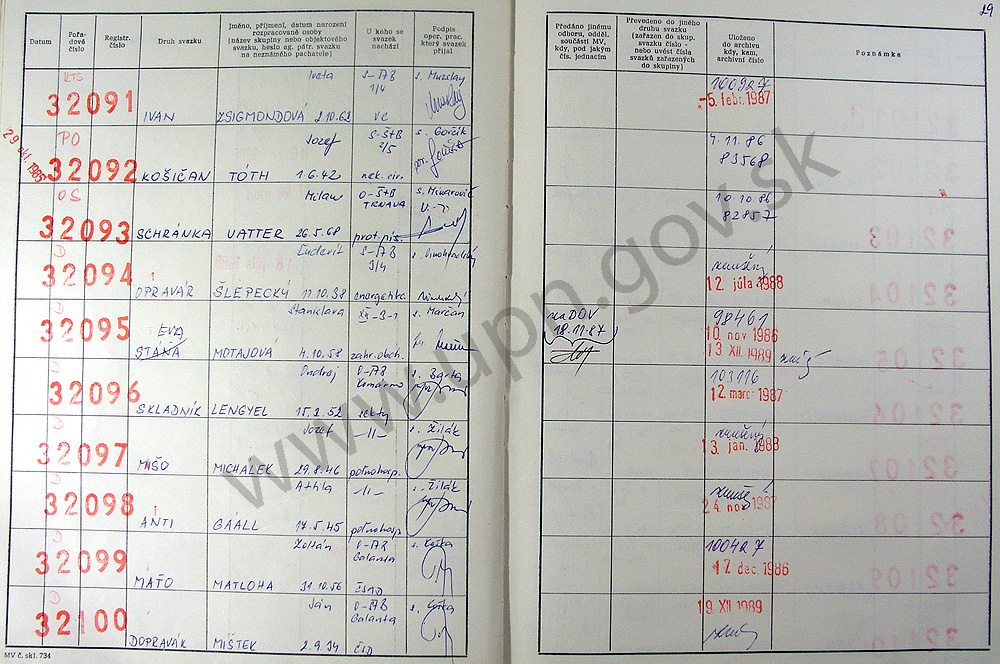 29
Datum
Pořadové číslo
Registr. číslo
Druh svazku
Jméno, příjmení, datum narození rozpracované osoby (název skupiny nebo objektového svazku, heslo ag. pátr. svazku na neznámého pachatele)
U koho se svazek nachází
Podpis oper. prac. který svazek přijal
Předáno jinému odboru, odděl. součásti MV, kdy, pod jakým čís. jednacím
Převedeno do jiného druhu svazku (zařazen do skup. svazku číslo - nebo uvést čísla svazků zařazených do skupiny)
Uloženo do archivu kdy, kam, archivní číslo
Poznámka
29 okt. 1985
32091
IVAN ZSIGMONDOVÁ 2.10.62 VC
100927
-5. febr. 1987
PO Jozef S-ŠtB s. Gorčák
32092 2/5
KOŠIČAN TÓTH 1.6.42
4.11.86
83568
OS Milan O-ŠtB
32093 TRNAVA
SCHRÁNKA VATTER 26.5.68 prot.pís.
10.10.86
82857
D Ľudevít S-ŠtB
32094 3/4
OPRAVÁR ŠLEPECKÝ 11.10.38 energetika
zničený
12. júla 1988
D Stanislava s. Marčan
32095
EVA
STÁŇA MOTAJOVÁ 4.10.58 zahr.obch.
18.11.87
98461
10. nov 1986
13. XII. 1989
D Ondrej
32096 Komárno
SKLADNÍK LENGYEL 15.2.52 sekty
103116
12. marc 1987
D Jozef -11- s. Žilák
32097
MIŠO MICHALEK 29.8.46 poľnohosp.
zničený
13. jan. 1988
D Attila -11- s. Žilák
32098
ANTI GAÁLL 17.5.45 poľnohosp.
24. nov 1987
D Zoltán
32099 Galanta
MAŤO MATLOHA 31.10.56 ČSD
100427
17. dec. 1986
D Ján
32100 Galanta
DOPRAVÁK MIŠTEK 2.9.34 ČSD
19. XII 1989
MV č. skl. 734
www.upn.gov.sk